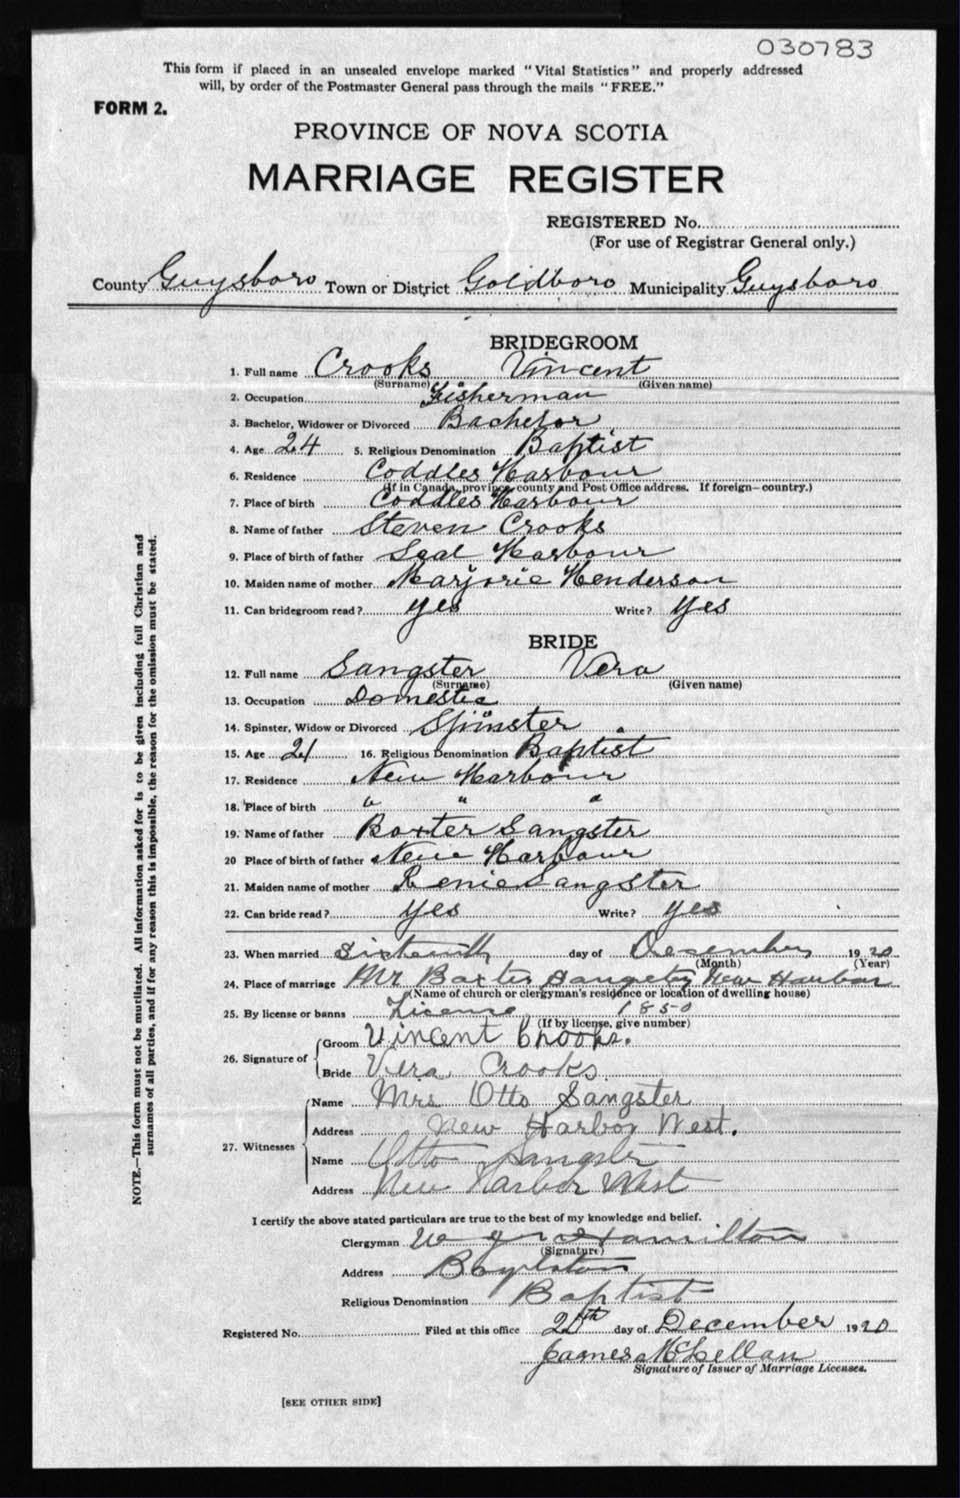 030783
This form if placed in an unsealed envelope marked "Vital Statistics" and properly addressed
will, by order of the Postmaster General pass through the mails "FREE."
FORM 2.
PROVINCE OF NOVA SCOTIA
MARRIAGE REGISTER
REGISTERED No.
(For use of Registrar General only.)
County Guysboro Town or District Goldboro Municipality Guysboro
BRIDEGROOM
1. Full name Crooks Vincent
(Surname) (Given name)
2. Occupation Fisherman
3. Bachelor, Widower or Divorced Bachelor
4. Age 24 5. Religious Denomination Baptist
6. Residence Coddles Harbour
(If in Canada, province, county and Post Office address. If foreign—country.)
7. Place of birth Coddles Harbour
8. Name of father Steven Crooks
9. Place of birth of father Seal Harbour
10. Maiden name of mother Marjorie Henderson
11. Can bridegroom read? yes Write? yes
BRIDE
12. Full name Sangster Vera
(Surname) (Given name)
13. Occupation Domestic
14. Spinster, Widow or Divorced Spinster
15. Age 21 16. Religious Denomination Baptist
17. Residence New Harbour
18. Place of birth " " "
19. Name of father Baxter Sangster
20 Place of birth of father New Harbour
21. Maiden name of mother Renie Sangster
22. Can bride read? yes Write? yes
23. When married Sixteenth day of December 1920
(Month) (Year)
24. Place of marriage Mr Baxter Sangster New Harbor
(Name of church or clergyman's residence or location of dwelling house)
25. By license or banns License 1850
(If by license, give number)
26. Signature of
Groom Vincent Crooks.
Bride Vera Crooks.
27. Witnesses
Name Mrs Otto Sangster
Address New Harbor West.
Name Otto Sangster
Address New Harbor West
I certify the above stated particulars are true to the best of my knowledge and belief.
Clergyman Hamilton
(Signature)
Address Boylston
Religious Denomination Baptist
Registered No. Filed at this office day of December 1920
James McLellan
Signature of Issuer of Marriage Licenses.
[SEE OTHER SIDE]
NOTE.—This form must not be mutilated. All information asked for is to be given including full Christian and
surnames of all parties, and if for any reason this is impossible, the reason for the omission must be stated.